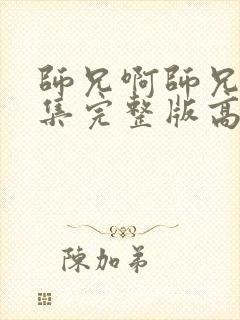 師兄啊師兄
集完整版高
陳加弟